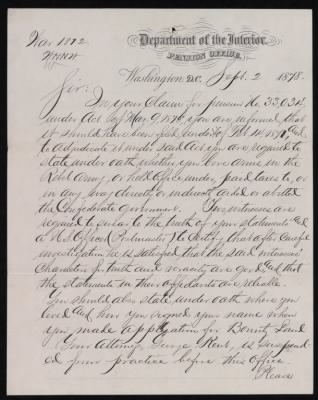 War 1812
Department of the Interior,
PENSION OFFICE,
Washington D.C. Sept. 2 1878.
Sir:
In your Claim for pension No. 33,034,
under Act of May 9, 1878, you are informed that
it should have been filed under Act Feb 14, 1871, and
to adjudicate it under said Act you are required to
state under oath, whether you bore arms in the
Rebel Army, or held Office under, paid taxes to, or
in any way directly or indirectly aided or abetted
the Confederate Government. Two witnesses are
required to swear to the truth of your statements and
a U.S. Official (Postmaster) to Certify that after Careful
investigation he is satisfied that the said witnesses'
Character for truth and veracity are good, and that
the statements in their affidavits are reliable.
You should also state under oath where you
lived and how you signed your name when
you made application for Bounty Land
Your Attorney George Kent, is suspend-
ed from practice before this Office.
Please